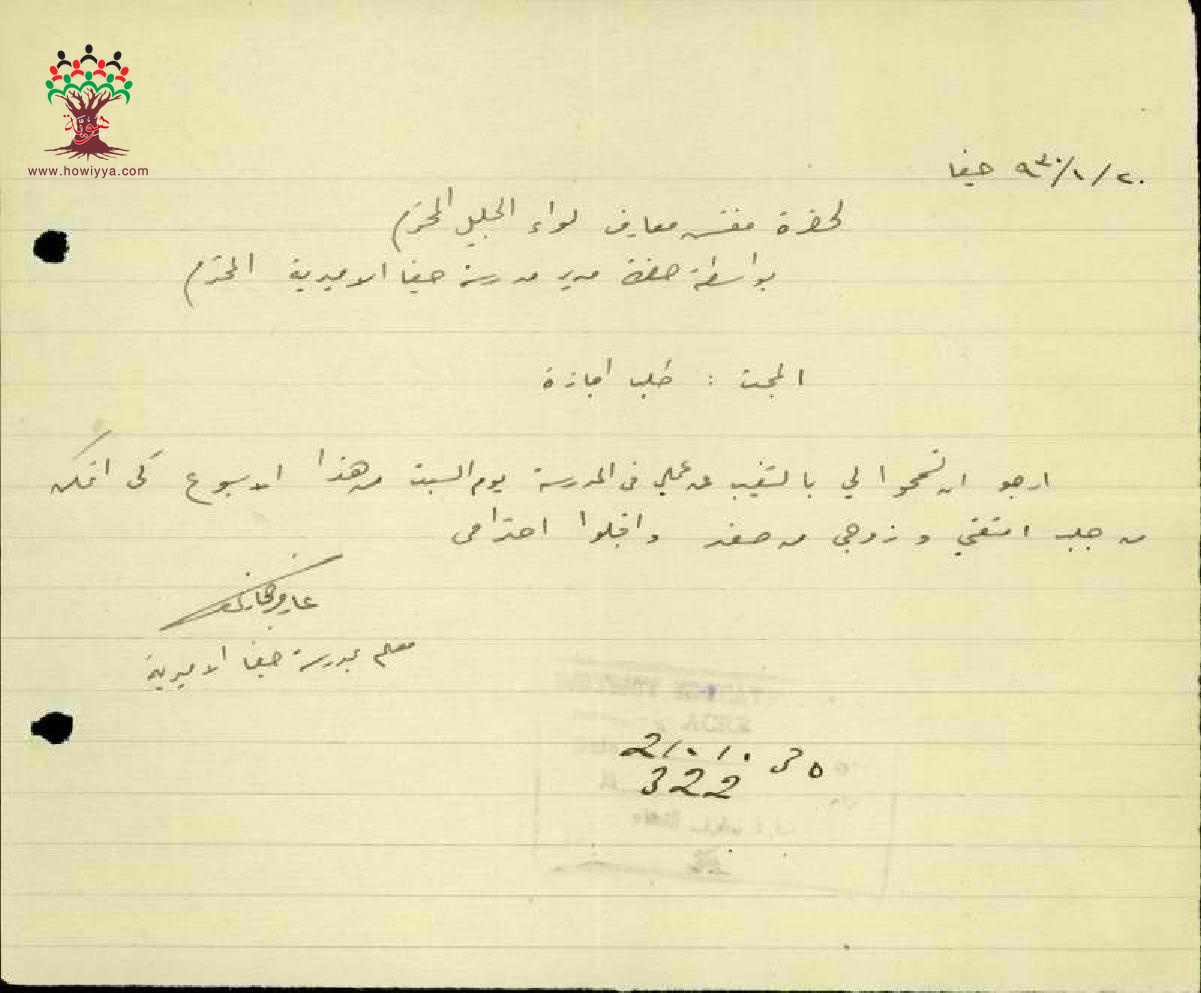 هوية
www.howiyya.com
حيفا ٢٠/١/٩٣٠
لحضرة مفتش معارف لواء الجليل المحترم
بواسطة حضرة مدير مدرسة حيفا الاميرية المحترم
المبحث : طلب اجازة
ارجو ان تسمحوا لي بالتغيب عن عملي في المدرسة يوم السبت من هذا الاسبوع كي اتمكن
من جلب امتعتي وزوجي من صفد واقبلوا احترامي
معلم بمدرسة حيفا الاميرية
322